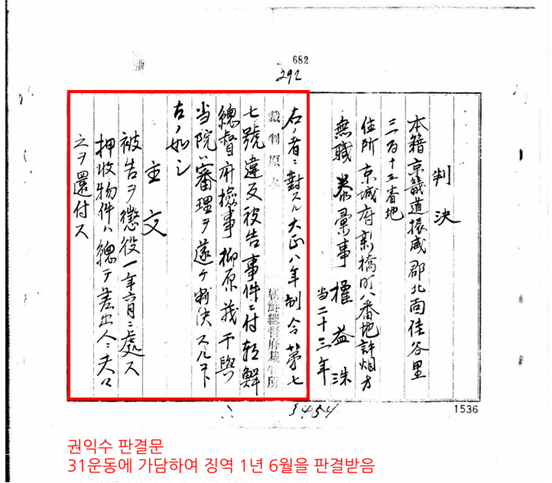 682
292
判決
本籍京畿道振威郡北面佳谷里
三百十三番地
住所 京城府新橋町八番地許烟方
無職 泰景事 權益洙
当二十三年
裁判原本
朝鮮總督府裁判所
右ノ者ニ對スル大正八年制令第七
七號違反被告事件ニ付朝鮮
總督府檢事柳原茂干與
当院ハ審理ヲ遂ケ判決スルヿ
左ノ如シ
主文
被告ヲ懲役一年六月ニ處ス
押收物件ハ總テ差出人ニ夫々
之ヲ還付ス
1536
권익수 판결문
31운동에 가담하여 징역 1년 6월을 판결받음